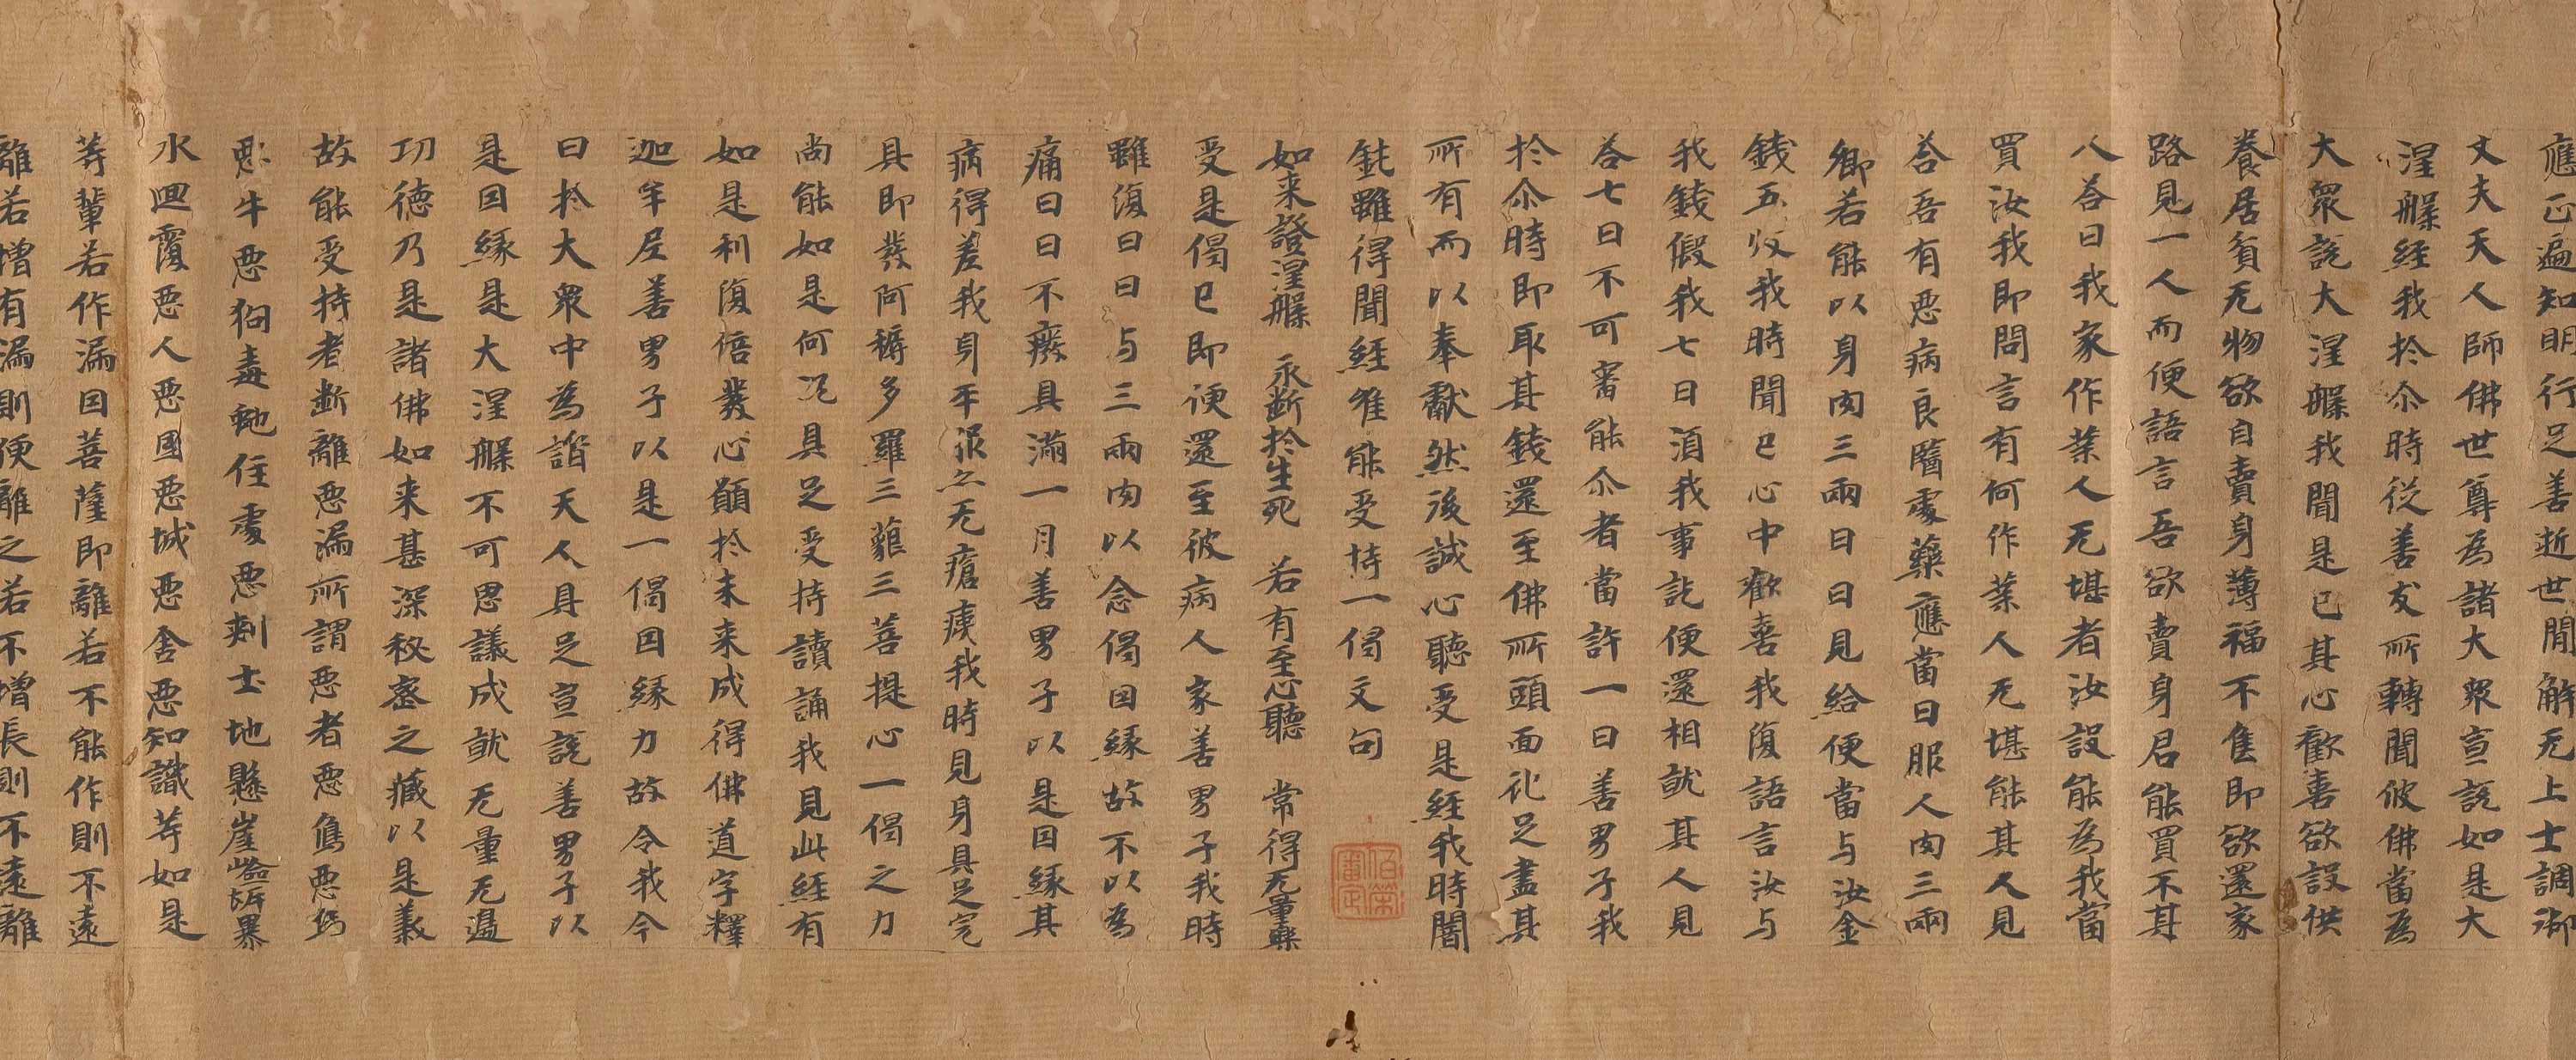 應正遍知明行足善逝世間解无上士調御
丈夫天人師佛世尊為諸大眾宣說如是大
涅槃經我於尒時從善友所轉聞彼佛當為
大眾說大涅槃我聞是已其心歡喜欲設供
養居貧无物欲自賣身薄福不售即欲還家
路見一人而便語言吾欲賣身君能買不其
人答曰我家作業人无堪者汝設能為我當
買汝我即問言有何作業人无堪能其人見
答吾有惡病良醫處藥應當日服人肉三兩
卿若能以身肉三兩日日見給便當与汝金
錢五枚我時聞已心中歡喜我復語言汝与
我錢假我七日湏我事訖便還相就其人見
答七日不可審能尒者當許一日善男子我
於尒時即取其錢還至佛所頭面礼足盡其
所有而以奉獻然後誠心聽受是經我時闇
鈍雖得聞經唯能受持一偈文句
如来證涅槃 永斷於生死 若有至心聽 常得无量樂
受是偈已即便還至彼病人家善男子我時
雖復日日与三兩肉以念偈因緣故不以為
痛日日不癈具滿一月善男子以是因緣其
病得差我身平復亦无瘡痍我時見身具足完
具即發阿耨多羅三藐三菩提心一偈之力
尚能如是何況具足受持讀誦我見此經有
如是利復倍發心願於未来成得佛道字釋
迦牟尼善男子以是一偈因緣力故令我今
日於大眾中為諸天人具足宣說善男子以
是因緣是大涅槃不可思議成就无量无邊
功德乃是諸佛如来甚深秘密之藏以是義
故能受持者斷離惡漏所謂惡者惡象惡馬
惡牛惡狗毒虵住處惡刺土地懸崖嶮岸暴
水迴澓惡人惡國惡城惡舍惡知識等如是
等輩若作漏因菩薩即離若不能作則不遠
離若增有漏則便離之若不增長則不遠離